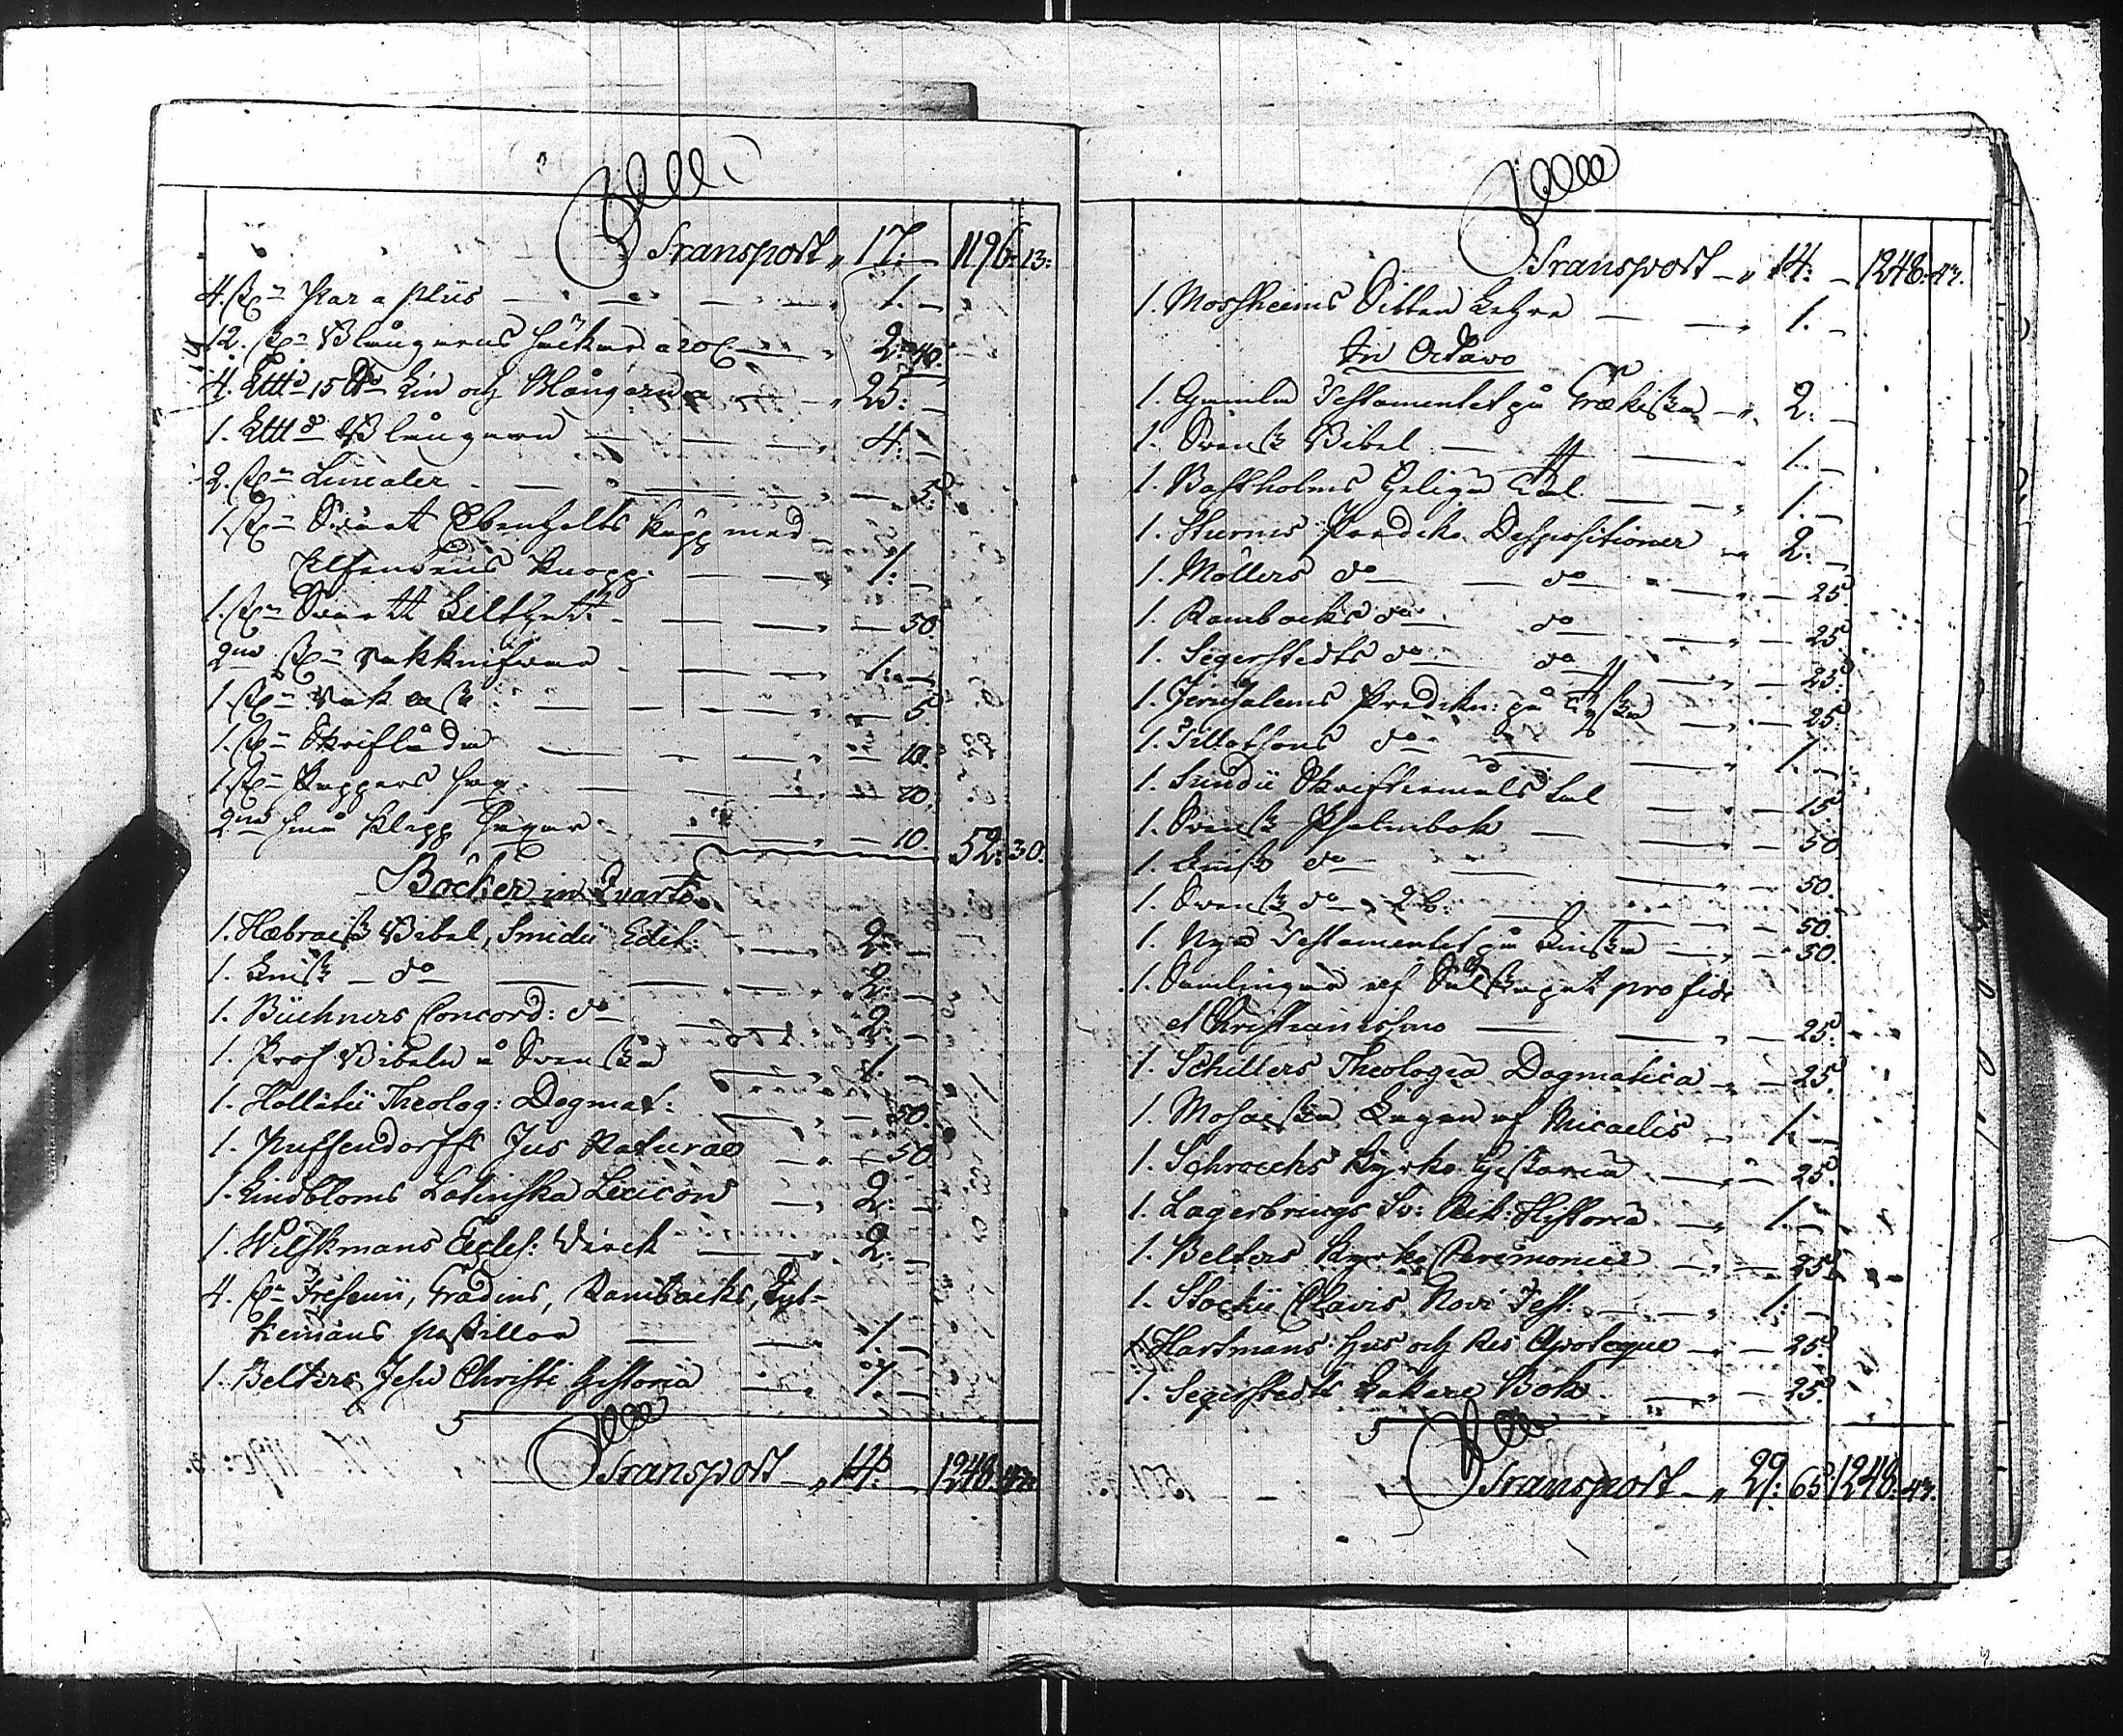 Transport „ 17: — 1196: 13:
4. st: Par a plüs — 1. —
12. st: Blångarns a 20 C — 2: 40.
4. Lttd 15 ttd Lin och Blångarn — 25: —
1. Lttd Blångarn — 4: —
2. st: Linealer — 5.
1. st: Svart Ebenholts käpp med
Elfenbens knopp — 1: —
1. st: Svart — 50.
2ne st: Rakknifvar — 1. —
1. st: Rak ask — 5.
1. st: Skriflåda — 10.
1. st: — 10.
2ne små — 10. 52: 30.
Böcker in Quarto
1. Hæbraisk Bibel, Smidii Edit: — 2: —
1. Finsk do — 2: —
1. Büchners Concord: do — 2: —
1. Prof Bibeln å Svenska — 1. —
1. Hollatii Theolog: Dogmat: — 50.
1. Puffendorffs Jus Naturae — 50.
1. Lindbloms Latinska Lexicon — 2: —
1. Wilskmans Eccles: Värck — 2: —
4. st: Fresenii, Gradins, Rambachs,
postillor — 1. —
1. Belters Jesu Christi Historia — 1. —
Transport „ 14: — 1248: 43.
Transport „ 14: — 1248: 43.
1. Mosheims Sitten Lehre — 1. —
In Octavo
1. Gamla Testamentet på Grækiska — 2: —
1. Svensk Bibel — 1. —
1. Bastholms Heliga Tal — 1. —
1. Sturms Prediko Dispositioner — 2: —
1. Möllers do — do — 25.
1. Rambachs do — do — 25.
1. Segerstedts do — do — 25.
1. Jerusalems Predikn: på Tyska — 25.
1. Tillotsons do — 1. —
1. Sundii Skriftermåls tal — 15.
1. Svensk Psalmbok — 50.
1. Finsk do — 50.
1. Svensk do — 50.
1. Nya Testamentet på Finska — 50.
1. Samlingar af Sälskapet pro fide
et Christianismo — 25.
1. Schillers Theologia Dogmatica — 25.
1. Mosaiska Lagen af Micaelis — 1. —
1. Schroeckhs Kyrko Historia — 25.
1. Lagerbrings Sv: Rik: Historia — 1. —
1. Belters Kyrko Ceremonier — 25.
1. Stockii Clavis Novi Test: — 1. —
1. Hartmans Hus och Res Apoteque — 25.
1. Segerstedts Läkare Bok — 25.
Transport „ 29: 65. 1248: 43.